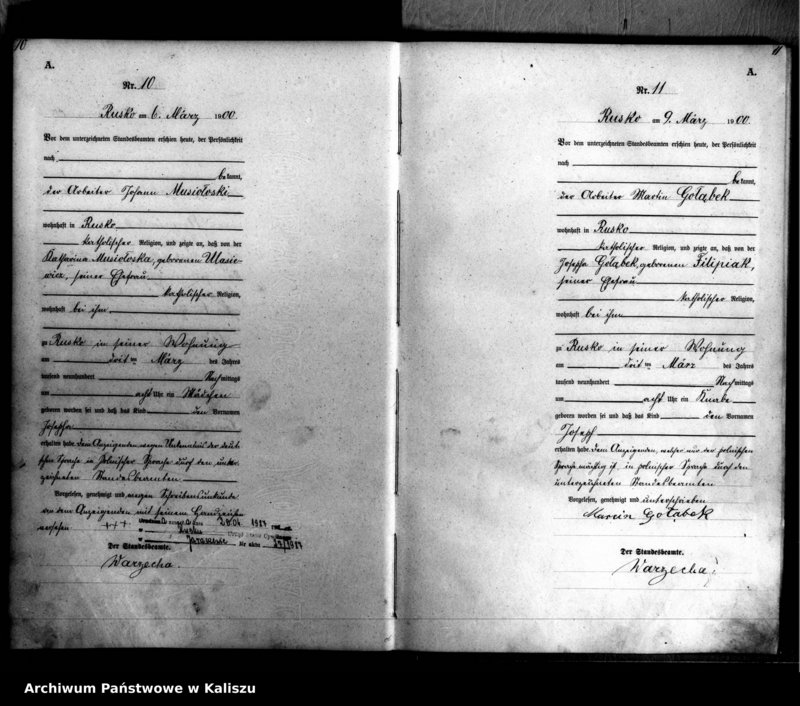 10
A.
Nr. 10
Rusko am 6. März 1900
Vor dem unterzeichneten Standesbeamten erschien heute, der Persönlichkeit
nach
be kannt,
der Arbeiter Johann Musiołoski
wohnhaft in Rusko
katholischer Religion, und zeigte an, daß von der
Katharina Musioloska, geborenen Ulasie-
wicz, seiner Ehefrau
katholischer Religion,
wohnhaft bei ihm
zu Rusko in seiner Wohnung
am drit ten März des Jahres
tausend neunhundert Nach mittags
um acht Uhr ein Mädchen
geboren worden sei und daß das Kind den Vornamen
Josepha
erhalten habe. Dem Anzeigenden wegen Unkenntnis der deut-
schen Sprache in polnischer Sprache durch den unter-
zeichneten Standesbeamten
Vorgelesen, genehmigt und wegen Schreibensunkunde
von dem Anzeigenden mit seinem Handzeichen
versehen +++
28.04 1987
Nr aktu
Der Standesbeamte.
Warzecha.
11
A.
Nr. 11
Rusko am 9. März 1900
Vor dem unterzeichneten Standesbeamten erschien heute, der Persönlichkeit
nach
be kannt,
der Arbeiter Martin Gołąbek
wohnhaft in Rusko
katholischer Religion, und zeigte an, daß von der
Josepha Gołąbek, geborenen Filipiak,
seiner Ehefrau
katholischer Religion,
wohnhaft bei ihm
zu Rusko in seiner Wohnung
am drit ten März des Jahres
tausend neunhundert Nach mittags
um acht Uhr ein Knabe
geboren worden sei und daß das Kind den Vornamen
Joseph
erhalten habe. Dem Anzeigenden, welcher nur der polnischen
Sprache mächtig ist, in polnischer Sprache durch den
unterzeichneten Standesbeamten
Vorgelesen, genehmigt und unterschrieben
Marcin Gołąbek
Der Standesbeamte.
Warzecha.
Archiwum Państwowe w Kaliszu